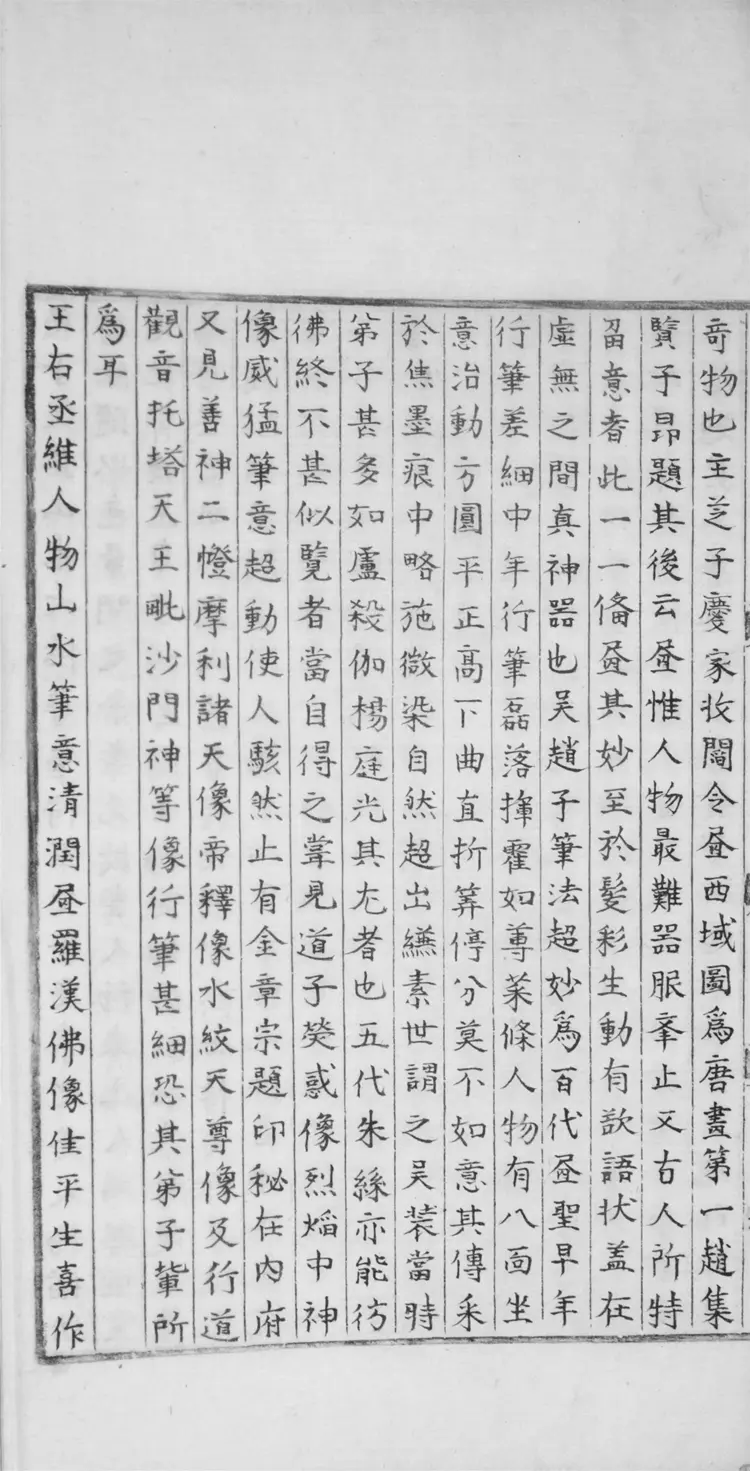 奇物也主芝子慶家收閻令𦘕西域圖爲唐畫第一趙集
賢子昂題其後云𦘕惟人物最難器服峯止又古人所特
留意者此一一俻𦘕其妙至於髮彩生動有欲語狀盖在
虛無之間真神器也吴趙子筆法超妙爲百代𦘕聖早年
行筆差細中年行筆磊落揮霍如蓴菜條人物有八面坐
意治動方圓平正高下曲直折筭停分莫不如意其傳采
於焦墨痕中略施微染自然超出縑素世謂之吴装當時
弟子甚多如盧殺伽楊庭光其尤者也五代朱繇亦能彷
彿終不甚似覽者當自得之甞見道子熒惑像烈熖中神
像威猛筆意超動使人駭然止有金章宗題印秘在内府
又見善神二幀摩利諸天像帝釋像水紋天尊像及行道
觀音托塔天王毗沙門神等像行筆甚細恐其弟子軰所
爲耳
王右丞維人物山水筆意清潤𦘕羅漢佛像佳平生喜作